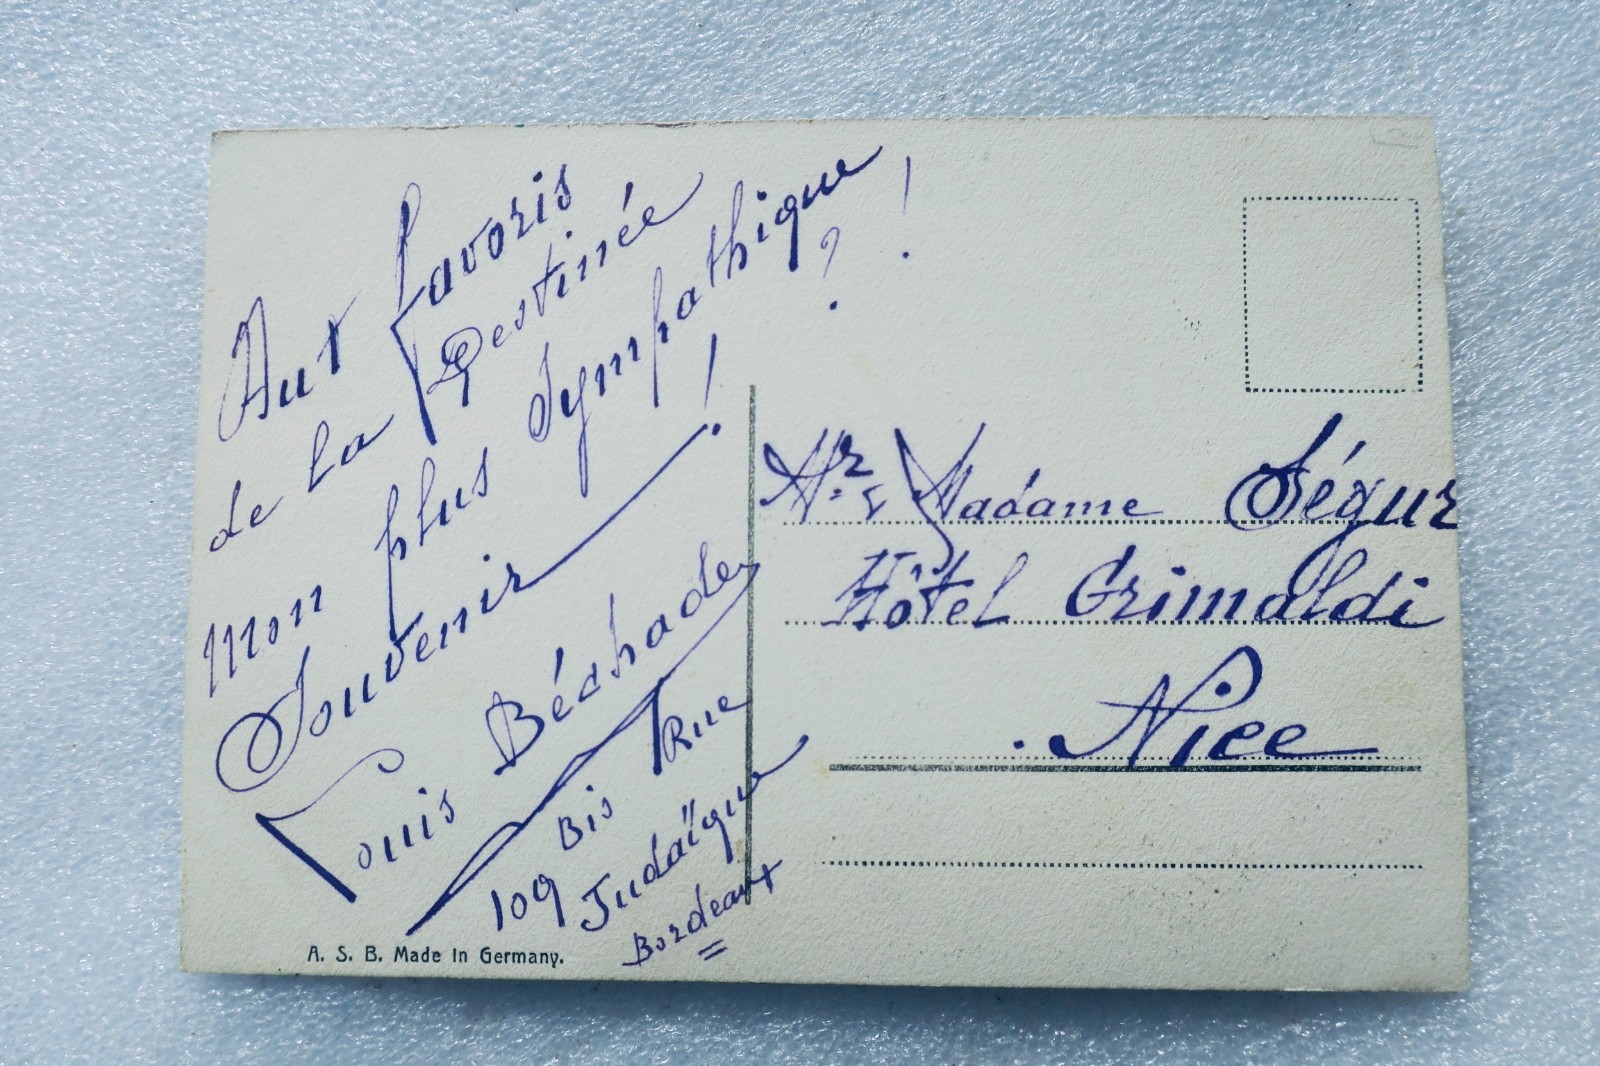 Aux favoris
de la Destinée ? !
mon plus sympathique
Souvenir !
Louis Béchade
109 Bis Rue
Judaïque
Bordeaux
A. S. B. Made in Germany.
Mr & Madame Ségur
Hôtel Grimaldi
Nice